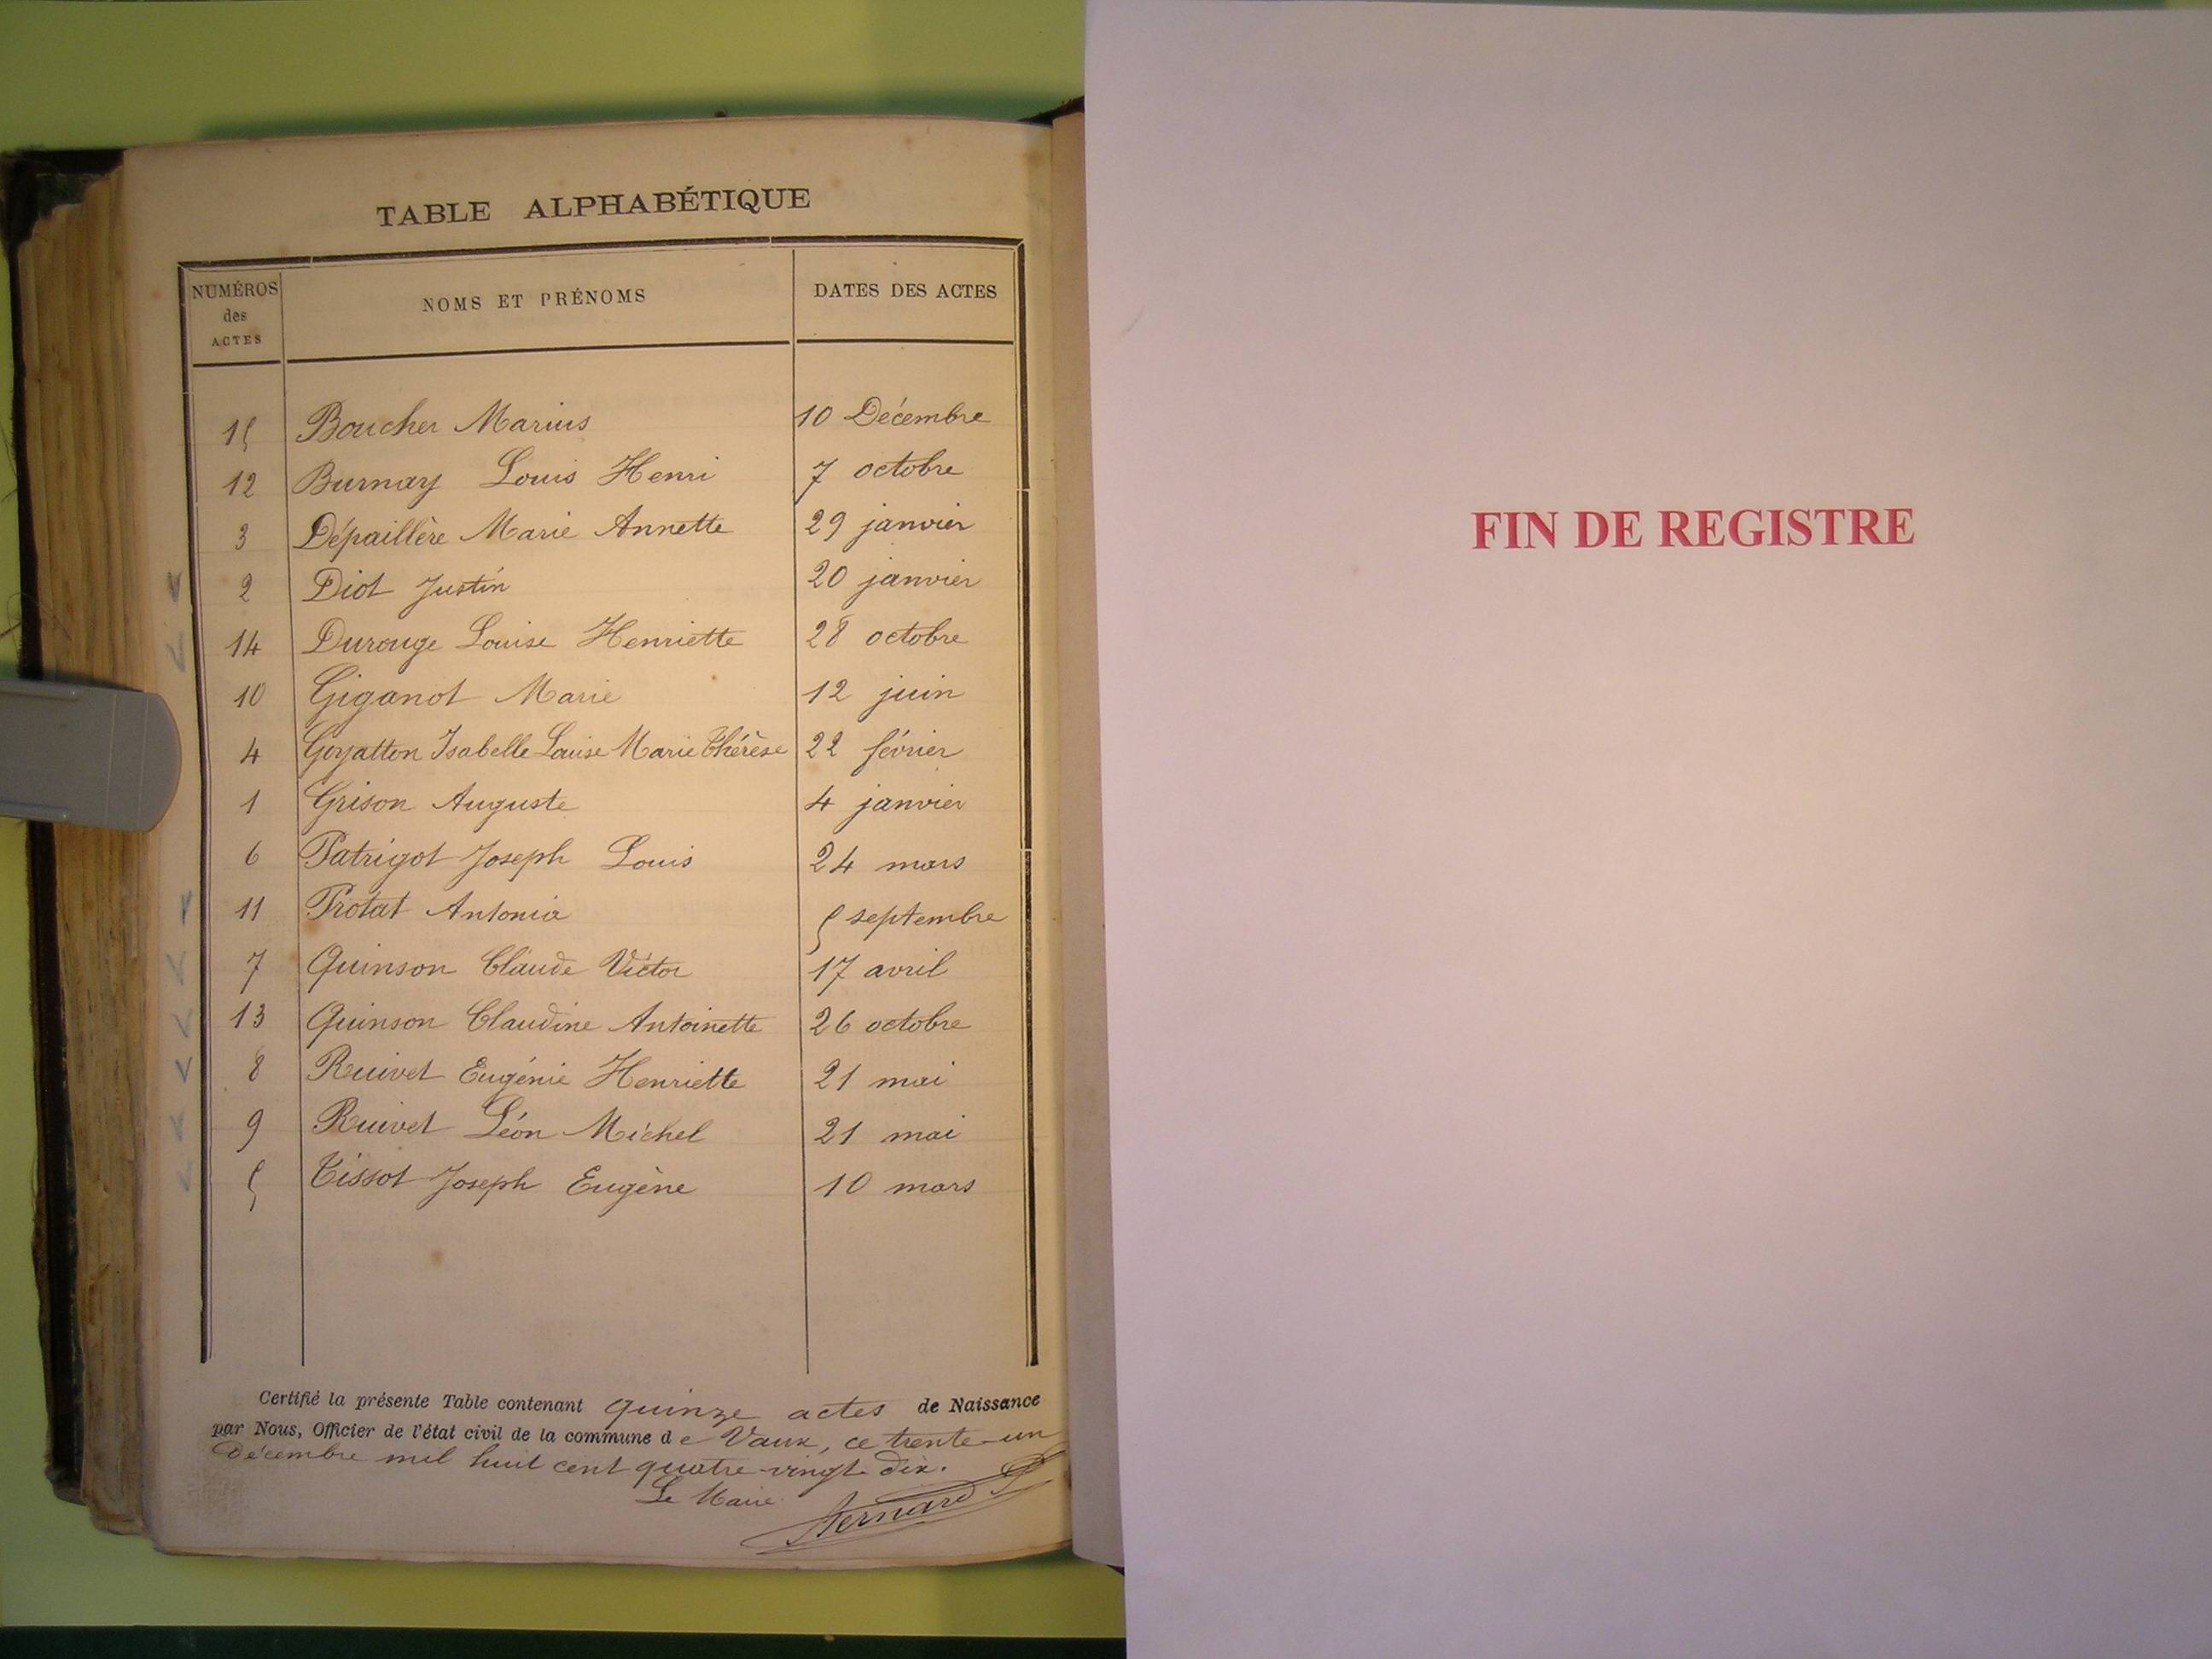 TABLE ALPHABÉTIQUE
NUMÉROS des ACTES NOMS ET PRÉNOMS DATES DES ACTES
15 Boucher Marius 10 Décembre
12 Burnay Louis Henri 7 octobre
3 Dépaillère Marie Annette 29 janvier
2 Diot Justin 20 janvier
14 Durouge Louise Henriette 28 octobre
10 Giganot Marie 12 juin
4 Goyatton Isabelle Louise Marie Thérèse 22 février
1 Grison Auguste 4 janvier
6 Patrigot Joseph Louis 24 mars
11 Protat Antonia 5 septembre
7 Quinson Claude Victor 17 avril
13 Quinson Claudine Antoinette 26 octobre
8 Ruivet Eugénie Henriette 21 mai
9 Ruivet Léon Michel 21 mai
5 Tissot Joseph Eugène 10 mars
Certifié la présente Table contenant quinze actes de Naissance
par Nous, Officier de l'état civil de la commune de Vaux, ce trente-un
Décembre mil huit cent quatre-vingt-dix.
Le Maire
FIN DE REGISTRE